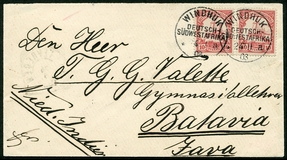 WINDHUK
DEUTSCH-
SÜDWESTAFRIKA
WINDHUK
DEUTSCH-
SÜDWESTAFRIKA
Den Heer
T. G. G. Valette
Gymnasiallehrer
Batavia
Java
Nied. Indien